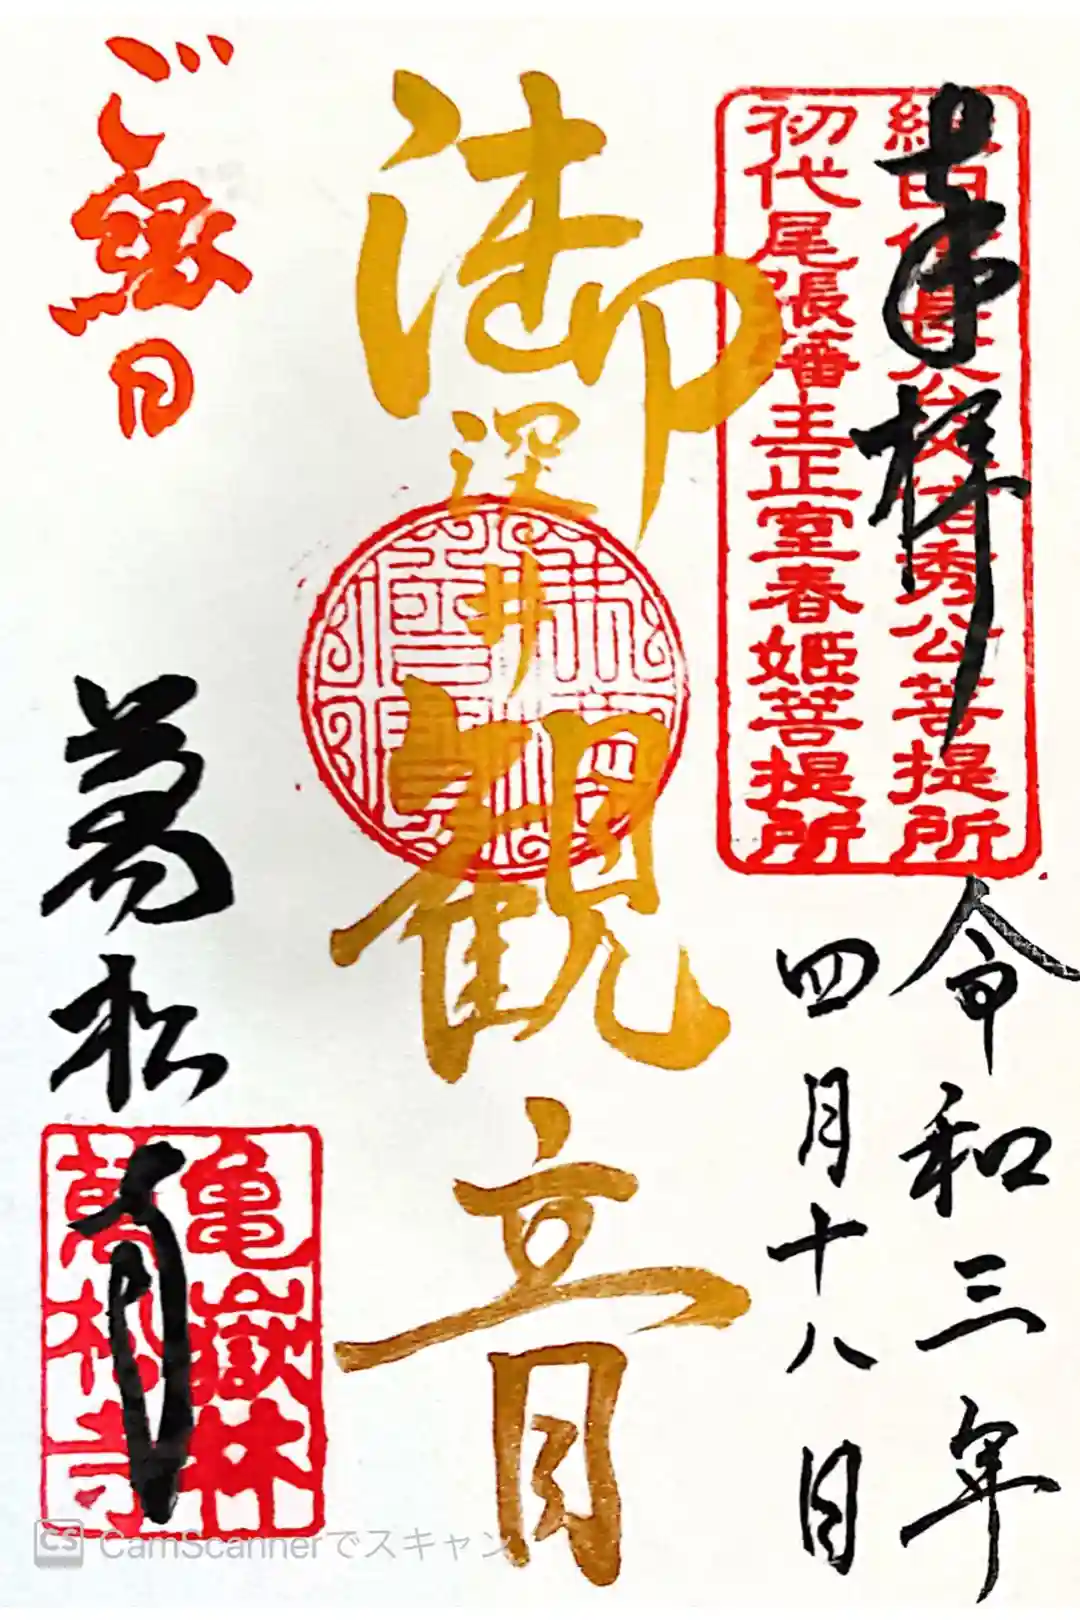 奉拝
織田信長公父信秀公菩提所
初代尾張藩主正室春姫菩提所
令和三年
四月十八日
御深井
観音
ご縁日
萬松寺
亀嶽林
萬松寺
CamScannerでスキャン